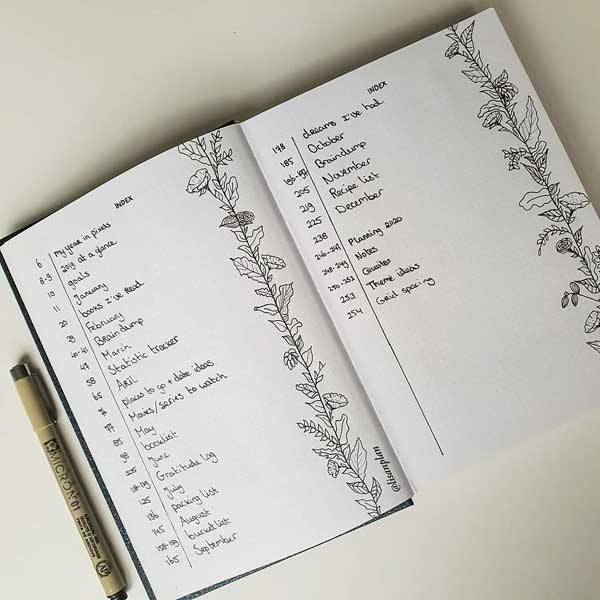 INDEX
6 My year in pixels
8-9 2019 at a glance
10 goals
11 January
20 books I've read
29 February
40-41 Braindump
47 March
58 Statistic tracker
65 April
76 places to go + date ideas
77 Movies/series to watch
85 May
98 booklist
June
118-119 Gratitude log
125 July
136 packing list
145 August
158-159 bucketlist
165 September
@lisanplan
INDEX
178 dreams I've had
185 October
Braindump
205 November
219 Recipe list
225 December
238 Planning 2020
246-247 Notes
248-249 Quotes
250-252 Theme ideas
253 Grid spacing
254
MICRON 01